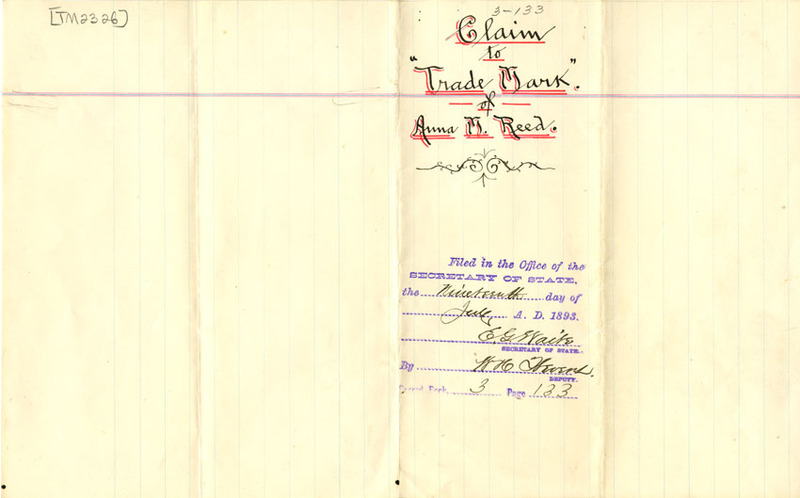 [TM2326]
3-133
Claim
to
"Trade Mark".
of
Anna M. Reed.
Filed in the Office of the
SECRETARY OF STATE,
the Nineteenth day of
July A. D. 1893.
E. G. Waite
SECRETARY OF STATE.
By W. H.
DEPUTY.
Record Book, 3 Page 133